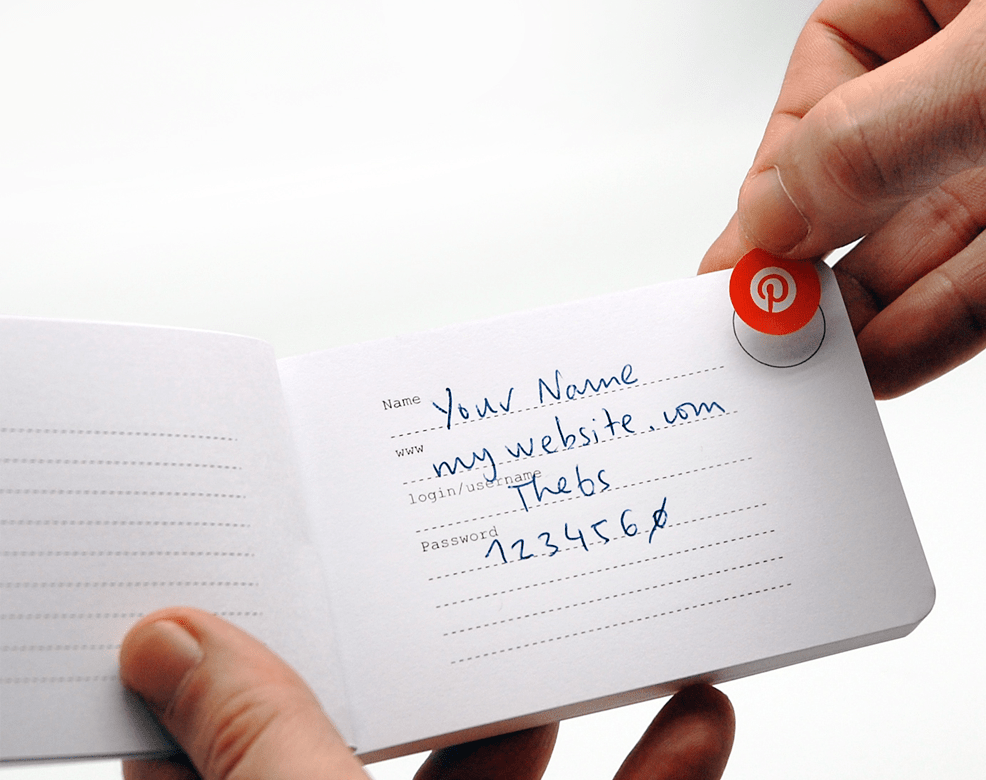 Name Your Name
www mywebsite.com
login/username Thebs
Password 123456ø